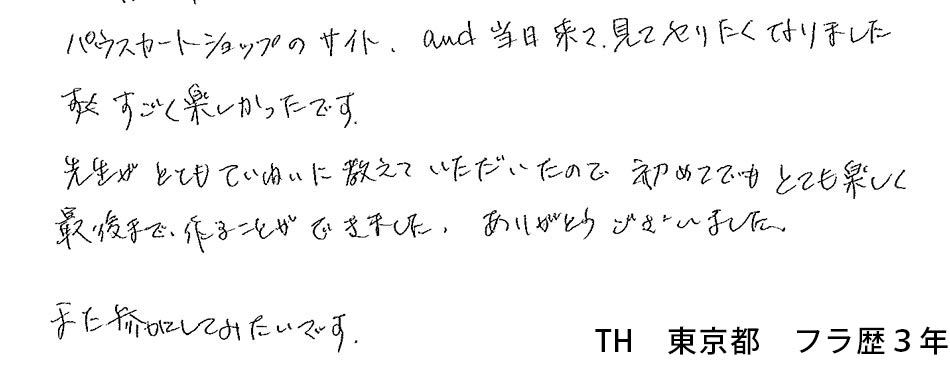 パウスカートショップのサイト、and当日来て、見てやりたくなりました
すごく楽しかったです。
先生がとてもていねいに教えていただいたので初めてでもとても楽しく
最後まで、作ることができました。ありがとうございました。
また参加してみたいです。
TH 東京都 フラ歴3年